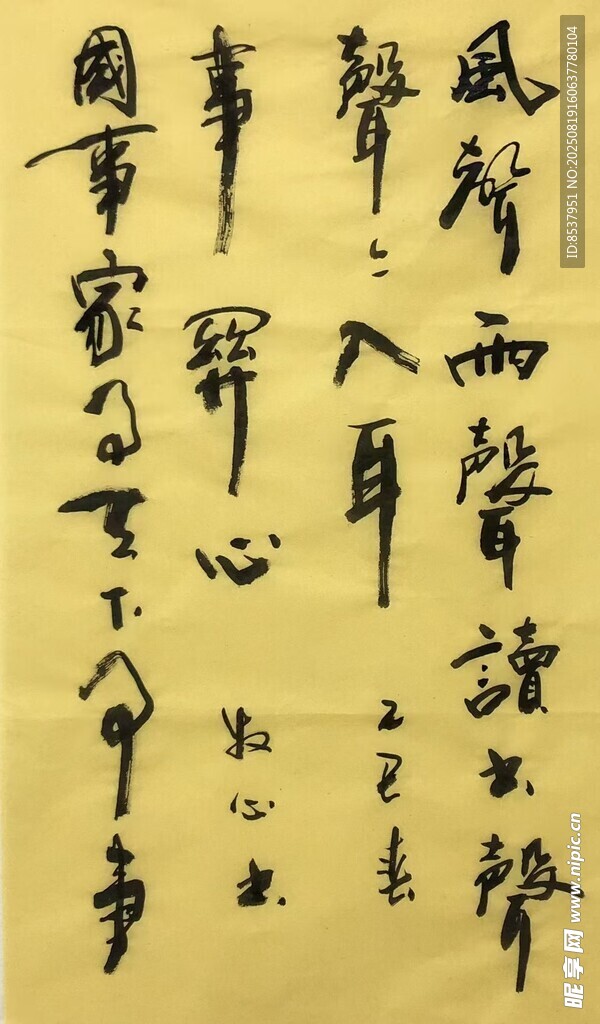 風聲雨聲讀書聲
聲〻入耳
乙巳春
國事家事天下事事
事關心
牧心書
ID:8537951 NO:20250819160637780104
昵享网 www.nipic.cn